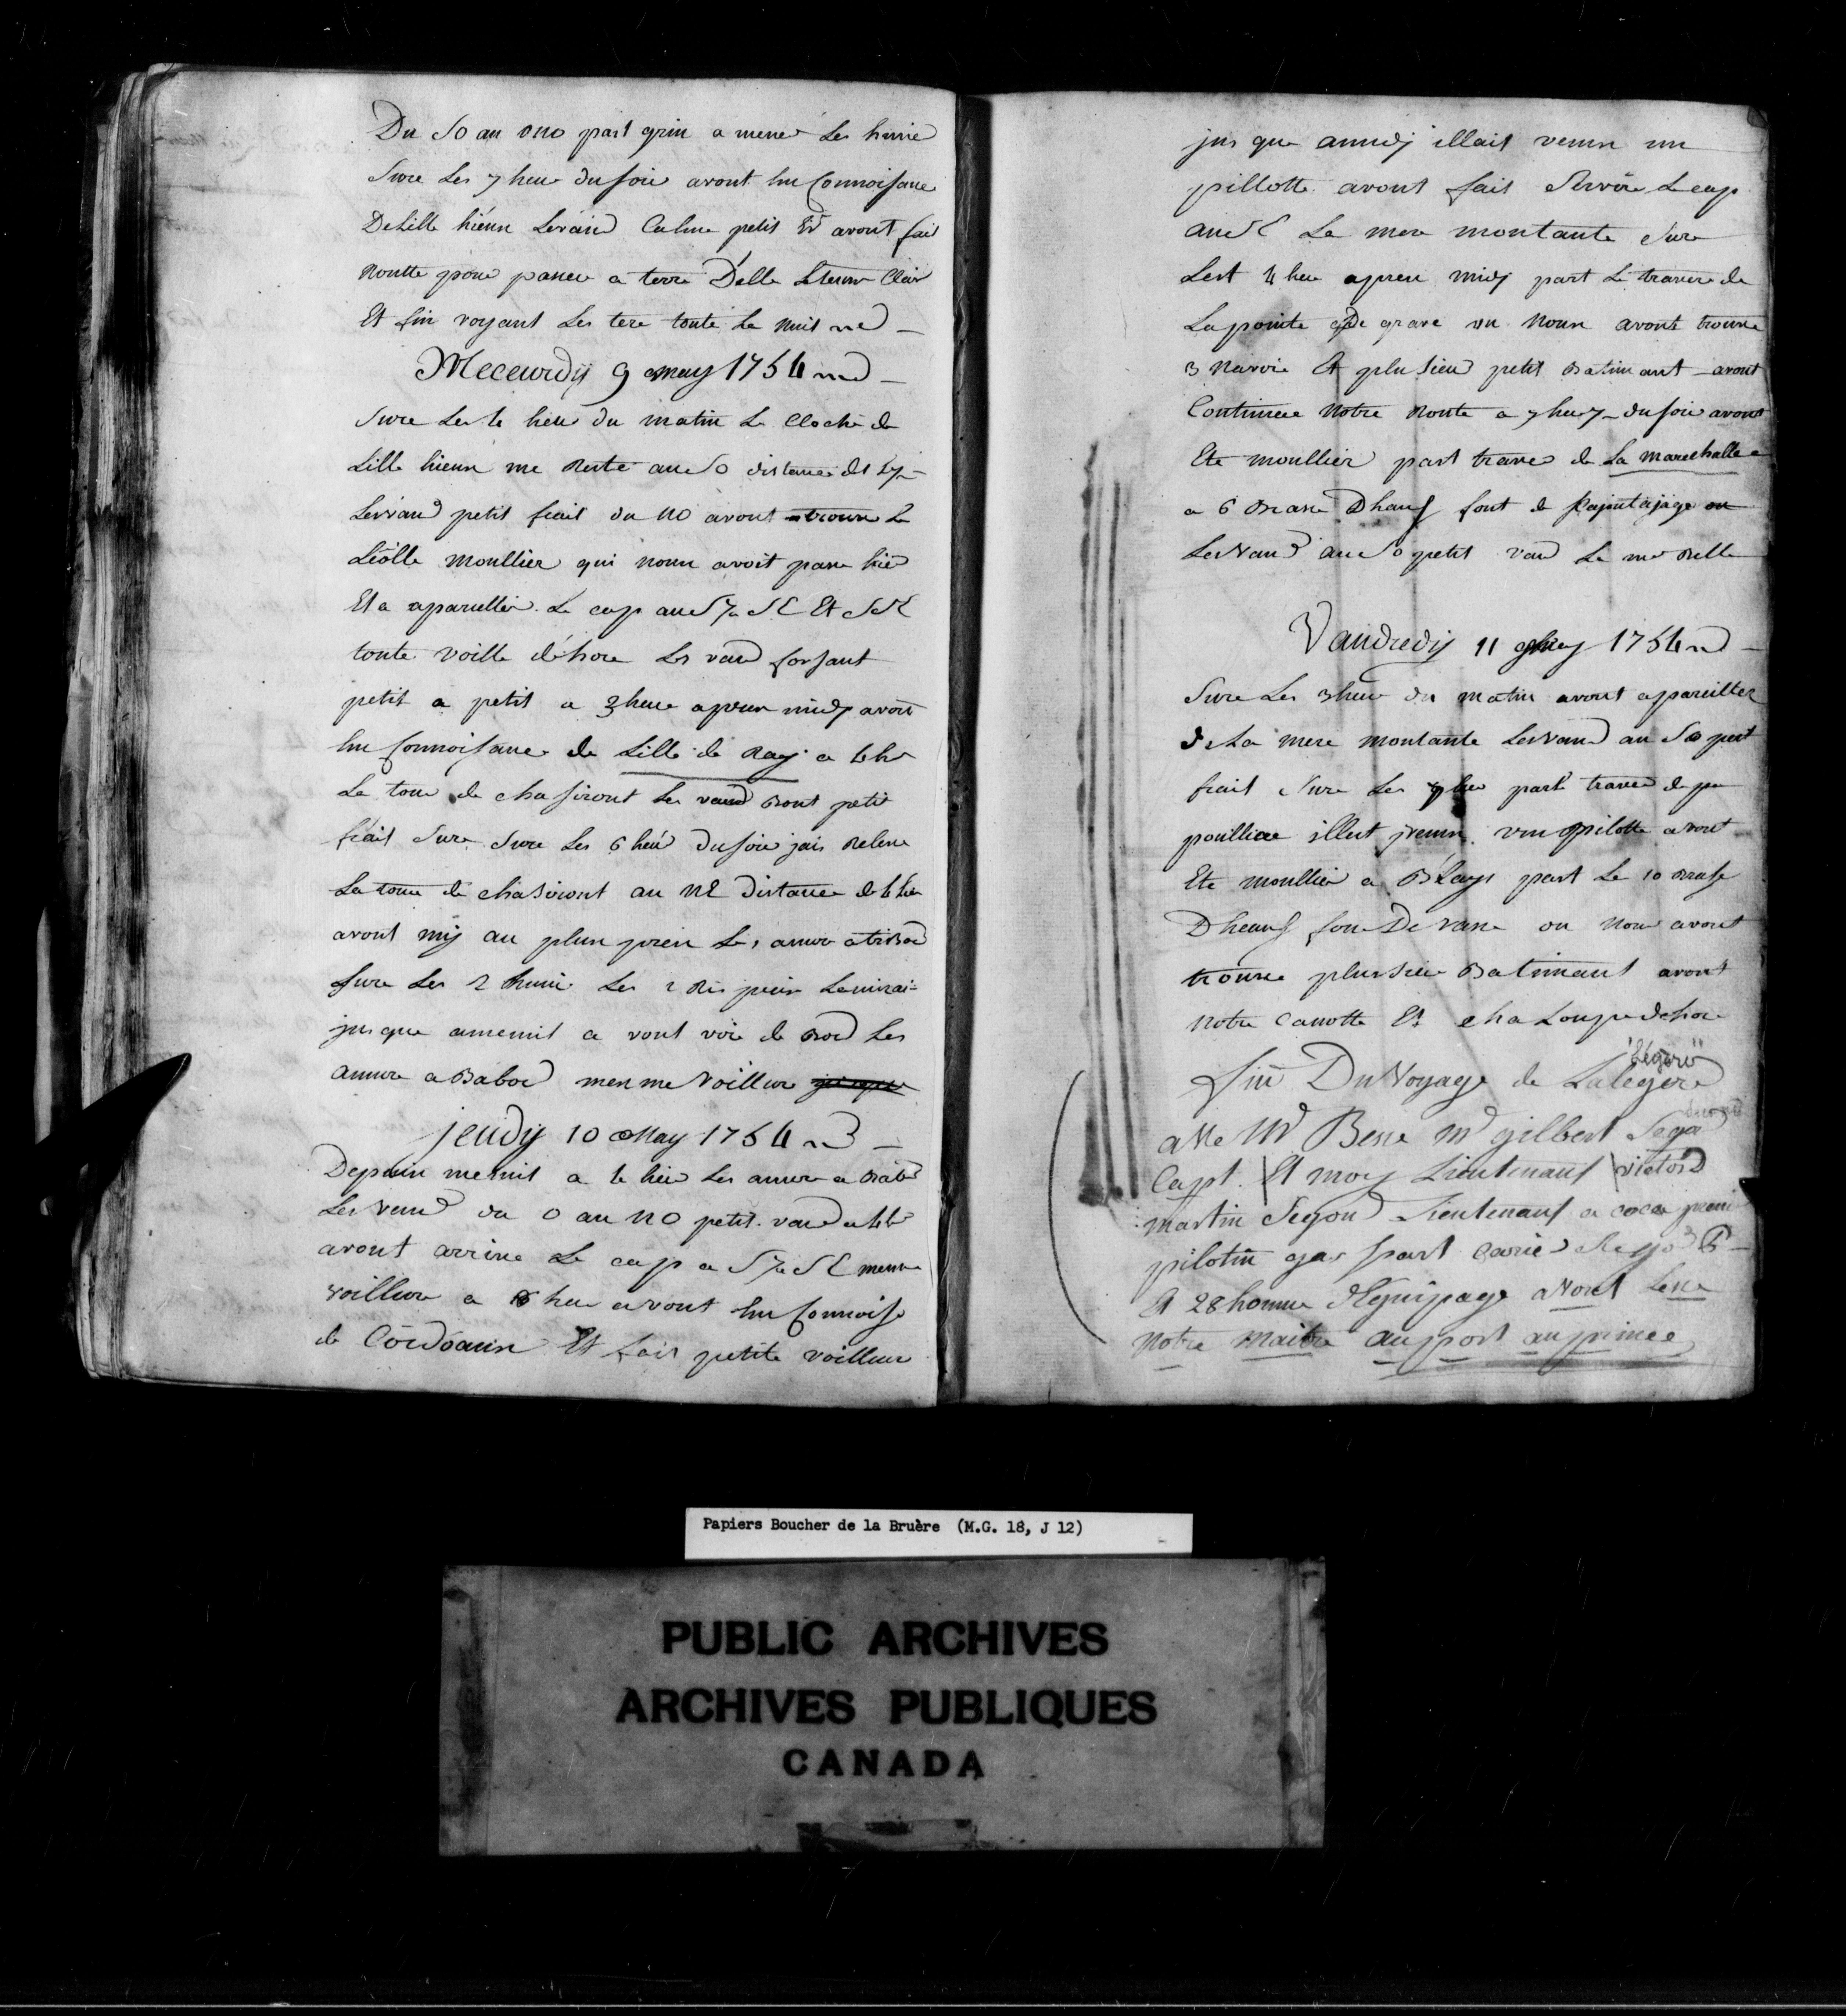 Du SO au ONO part grin a mene Les hunie
Sure Les 7 heur du soir avont hu Connoisance
De Lille hieux Levand Calme petit avont fait
Routte pour passer a terre D'elle Clair
Et fin voyant Les tere toute La nuit
Meceurdij 9 may 1754
Sure Les 4 heur du matin Le Cloche de
Lille hieux me Reste au SO distance de
Levand petit frait du NO avont trouve Le
Leolle moullier qui nous avoit passe hier
Et a apareller Le cap au S ¼ SE Et SSE
toute voille dehore Les vand forsant
petit a petit a 3 heure apreu midy avont
hu Connoisance de Lille de Ray a 4 h
La tour de chasiront Les vandRont petit
frait Sure Sure Les 6 heur du soir jais Releve
La tour de chasiront au NE Distance de 4
avont mij au plus preu Les amure atribord
Sure Les 2 huni Les 2 Ris
jusque amenuit a vont vire de Bord Les
amure a Babor mesme Voillure jusque
jeudij 10 May 1754
Depuis menuit a 4 heur Les amure a Babord
Les vand du O au NO petit vand a 4 h
avont arrive Le cap a S ¼ SE mesme
voillure a 8 heur avont hu Connoise
de Cordoaun Et fait petite voillure
jus que amidj illait venu un
pillotte avont fait Servire Le cap
au SE La mer montante Sure
Lest 4 heur apreu midj part Le traver de
La pointe De grave ou Nous avont trouve
3 Navire Et plusieu petit Batimant avont
Continuee Notre Route a 7 heur du soir avont
Ete moullier part traver de La marechalle
a 6 Brasse Dhauf font de
Les Vand au SO petit vand La mer Belle
Vandredij 11 May 1754
Sure Les 3 heur du matin avont apareiller
De La mere montante Les vand au SO petit
frait Sure Les 7 heur part traver de po
poulliac illest venu un pilotte avont
Ete moullier a Blays part Le 10 Brasse
Dheauf fon De vase ou Nous avont
trouve plusieu Batimant avont
Notre Canotte Et chaLoupe dehore
"Légère"
Fin Du Voyage de La légere
a Me Mr Besse Mr gilbert Segond
Capt. Et moy Lieutenant victord
martin Segond Lieutenant a premie
pilotin gaspart Carie
Et 28 homme dEquipage avont Lesse
Notre maitre au port au prince
Papiers Boucher de la Bruère (M.G. 18, J 12)
PUBLIC ARCHIVES
ARCHIVES PUBLIQUES
CANADA